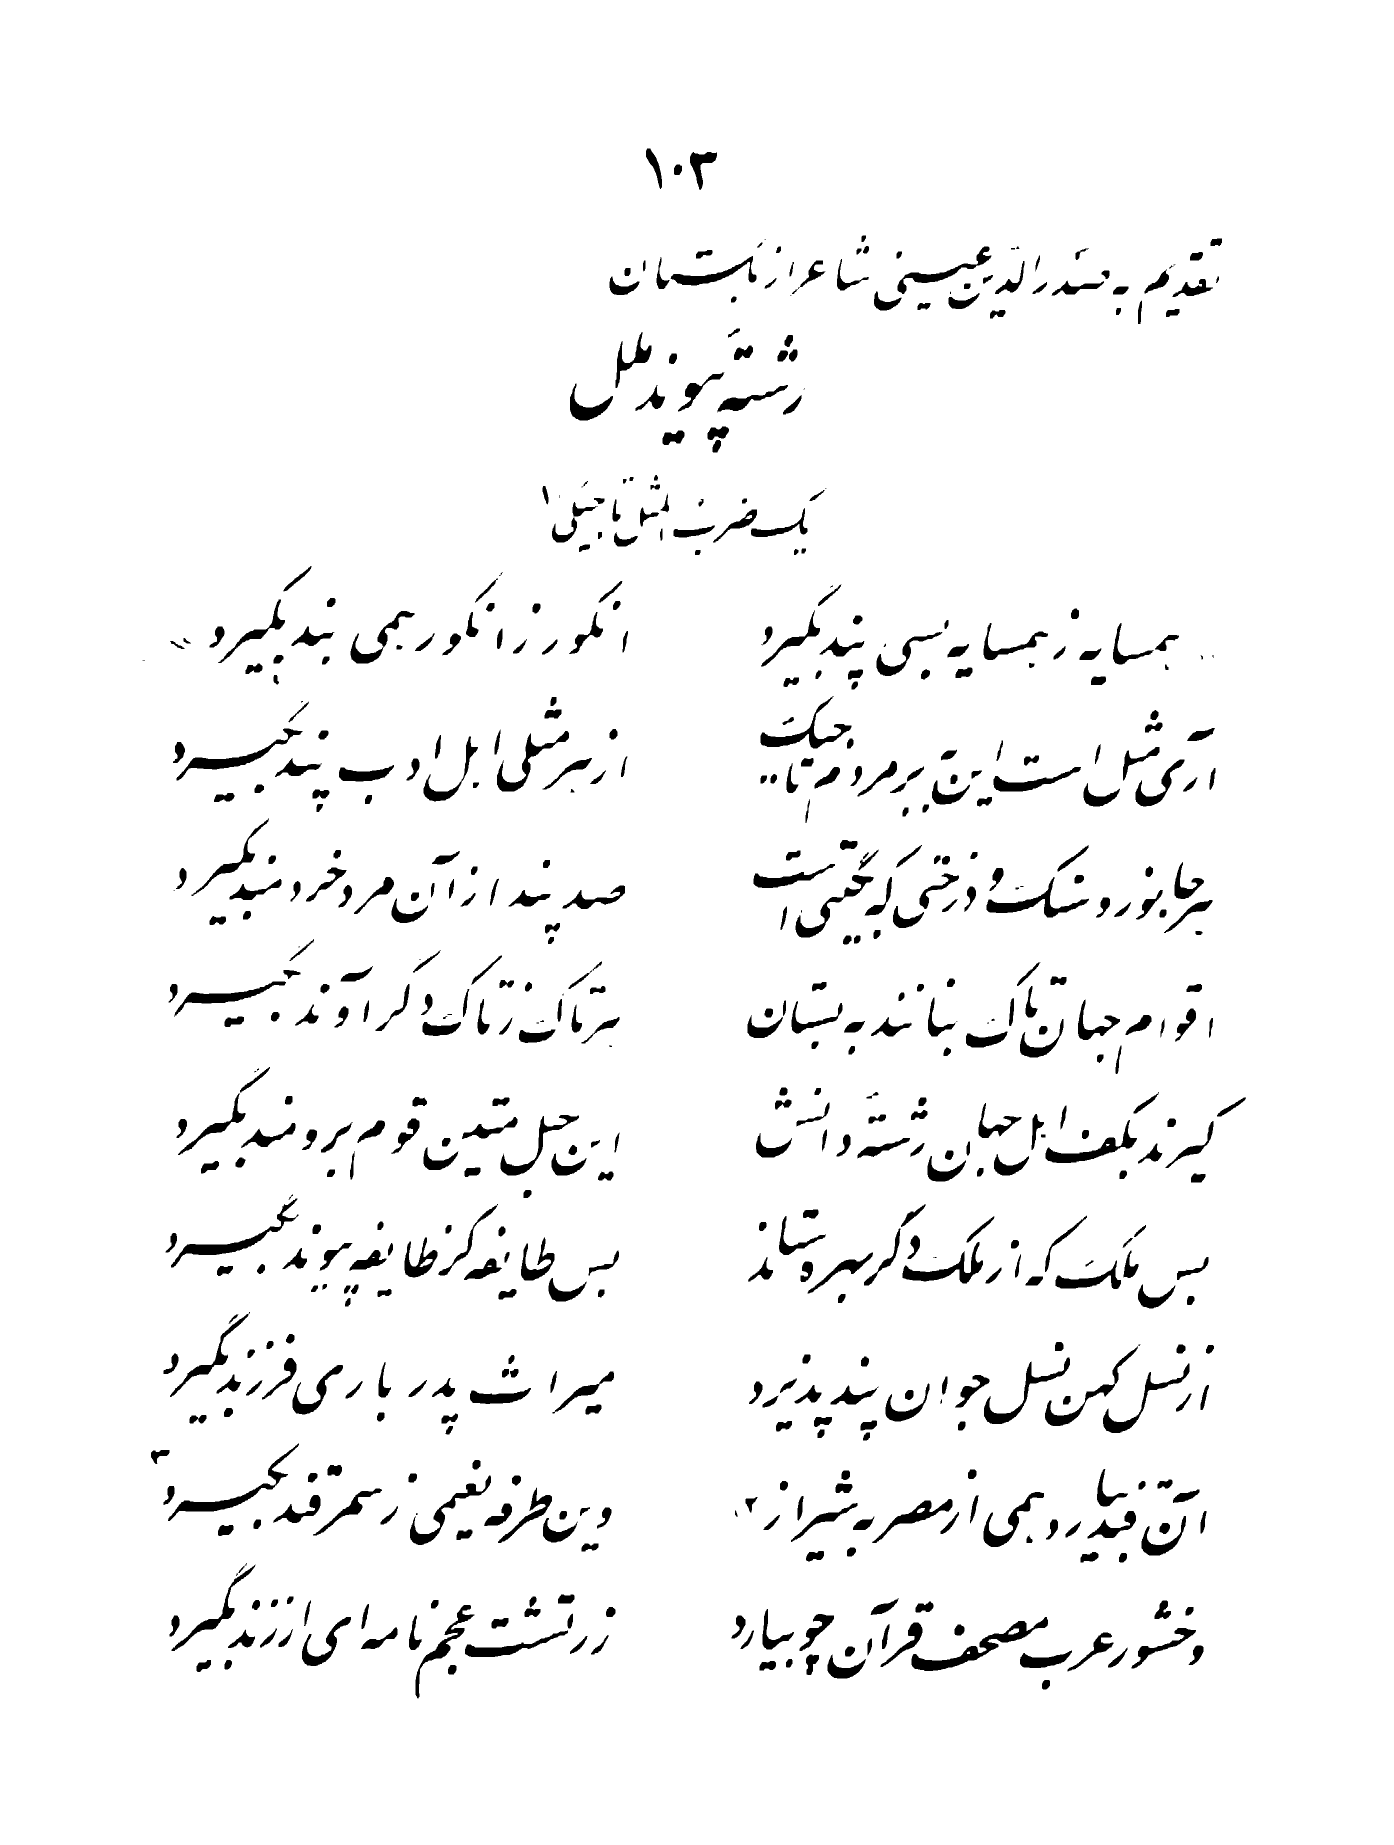 ۱۰۳
تقدیم به صدرالدین عینی شاعر از تاجیکستان
رشته پیوند ملل
یک ضرب المثل تاجیکی ۱
«همسایه ز همسایه بسی پند بگیرد انگور ز انگور همی بند بگیرد»
آری مثل است این بر مردم تاجیک از هر مثلی اهل ادب پند بگیرد
هر جانور و سنگ و درختی که بگیتی است صد پند از آن مرد خردمند بگیرد
اقوام جهان تاک بنانند به بستان هر تاک ز تاک دگر آوند بگیرد
گیرند بکف اهل جهان رشته دانش این حبل متین قوم برومند بگیرد
بس ملک که از ملک دگر بهره ستاند بس طایفه کز طایفه پیوند بگیرد
از نسل کهن نسل جوان پند پذیرد میراث پدر باری فرزند بگیرد
آن قند بیارد همی از مصر به شیراز ۲ وین طرفه نعیمی ز سمرقند بگیرد ۳
وخشور عرب مصحف قرآن چو بیارد زرتشت عجم نامه‌ای از زند بگیرد